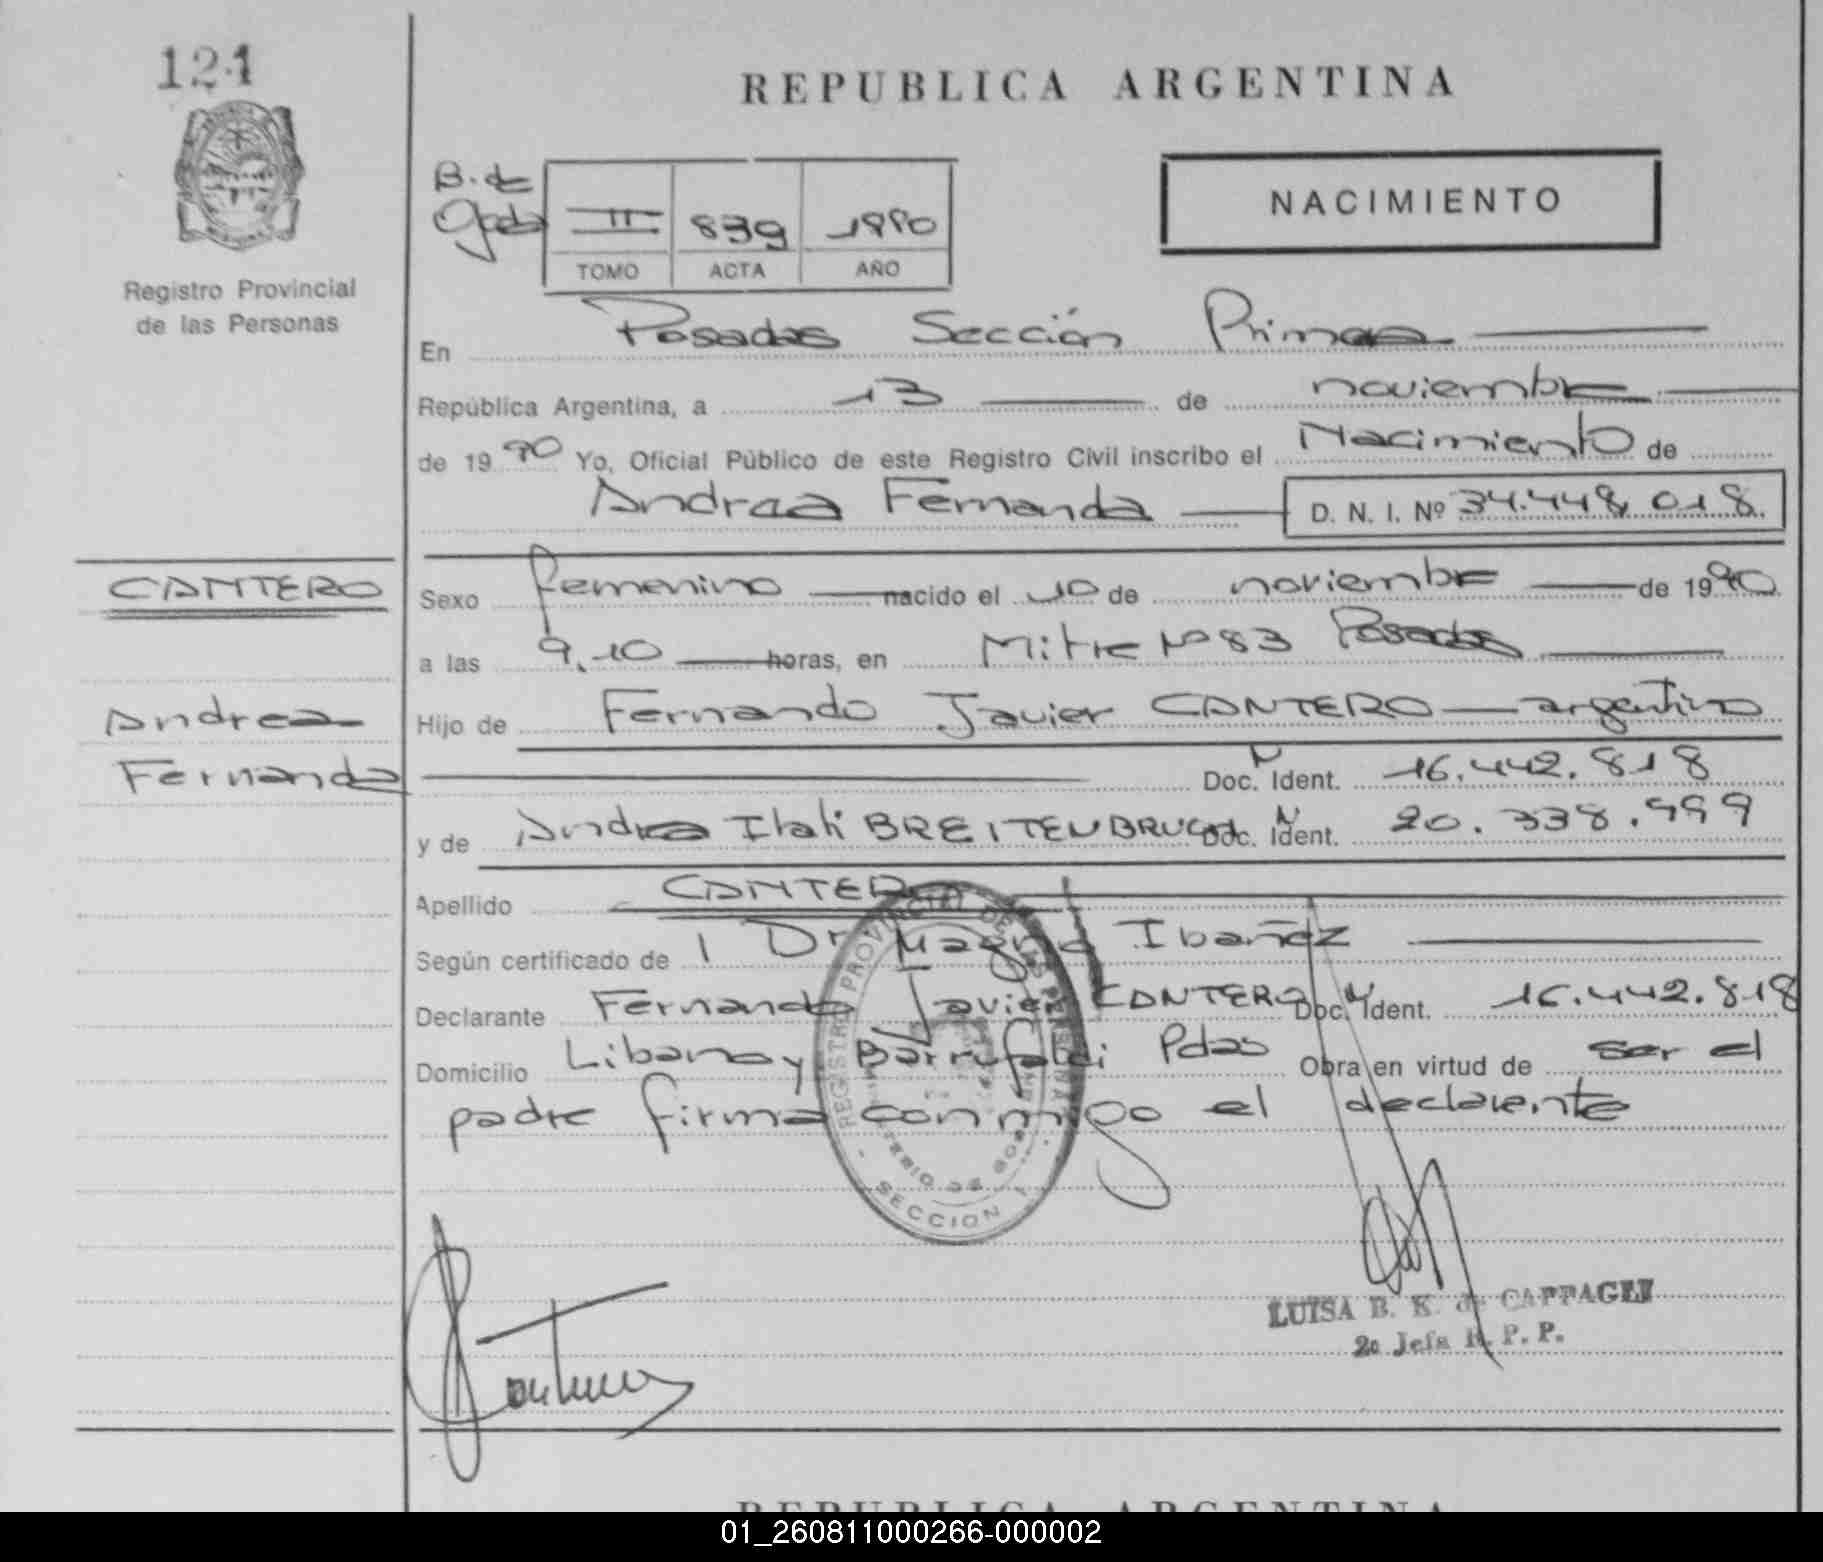 121
REPUBLICA ARGENTINA
B. de
II 839 1990
TOMO ACTA AÑO
NACIMIENTO
Registro Provincial
de las Personas
En Posadas Sección Primera
República Argentina, a 13 de noviembre
de 1990 Yo, Oficial Público de este Registro Civil inscribo el Nacimiento de
Andrea Fernanda D. N. I. Nº 34.448.018
CANTERO
Sexo femenino nacido el 10 de noviembre de 1990
a las 9.10 horas, en Mitre Nº 83 Posadas
Andrea
Hijo de Fernando Javier CANTERO argentino
Fernanda
Doc. N Ident. 16.442.818
y de Andrea Itatí BREITENBRUCH Doc. N Ident. 20.338.999
Apellido CANTERO
Según certificado de 1 Dr Magno Ibañez
Declarante Fernando Javier CANTERO Doc. N Ident. 16.442.818
Domicilio Libano y Barrufaldi Pdas Obra en virtud de ser el
padre firma conmigo el declarente
REGISTRO PROVINCIAL DE LAS PERSONAS
MINISTERIO DE GOBIERNO
SECCION 1
LUISA B. K. de
2a Jefa R. P. P.
REPUBLICA ARGENTINA
01_260811000266-000002